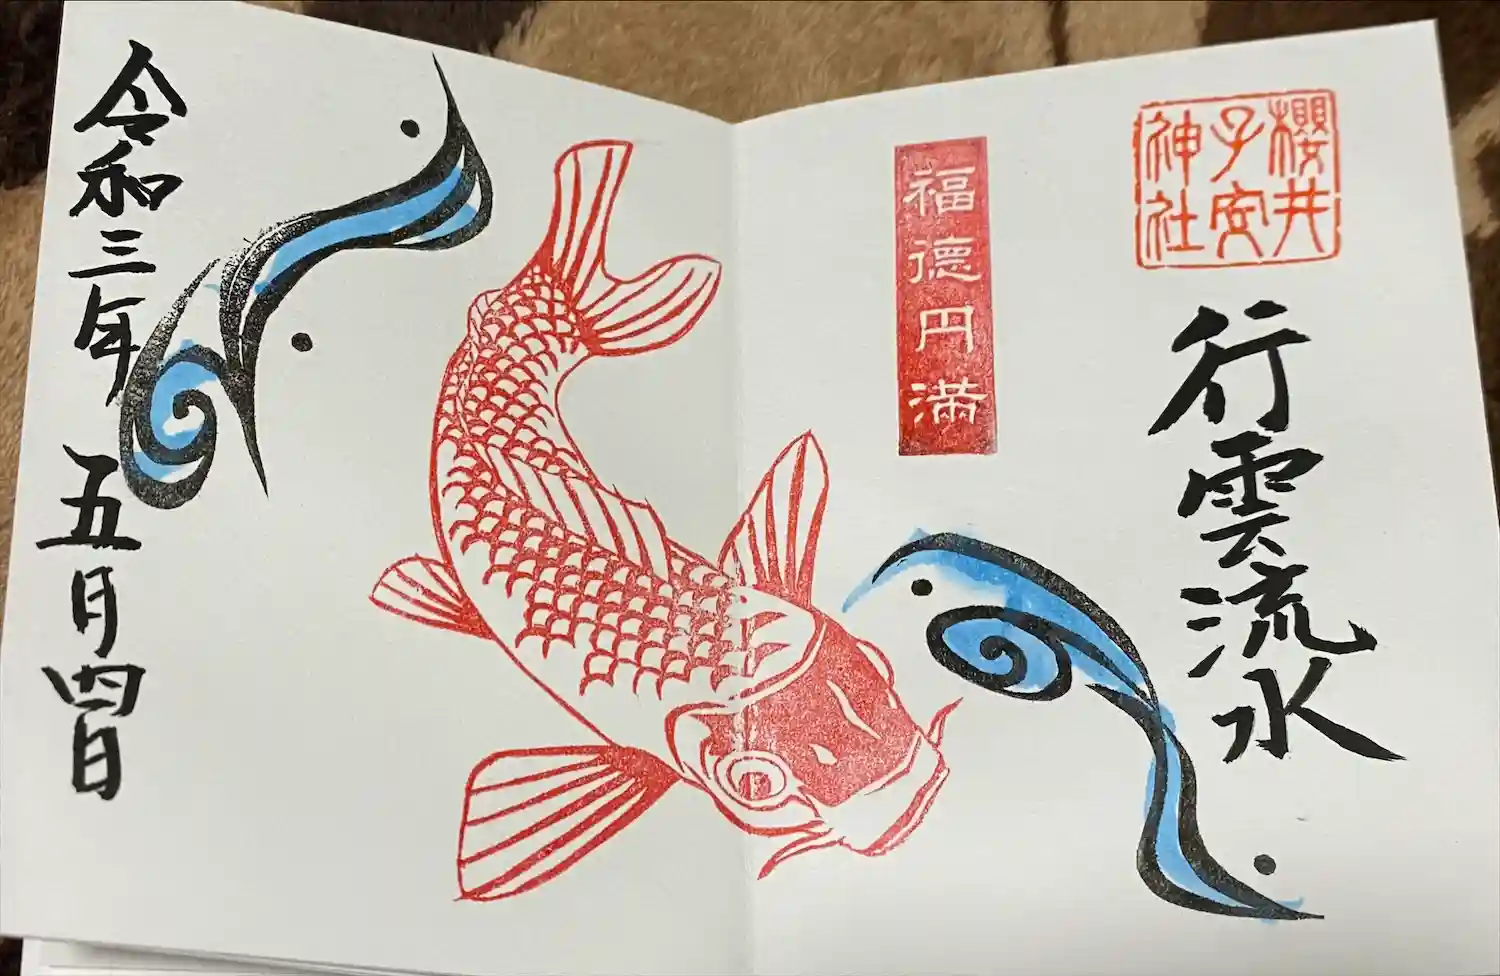 櫻井
子安
神社
行雲流水
福徳円満
令和三年
五月四日